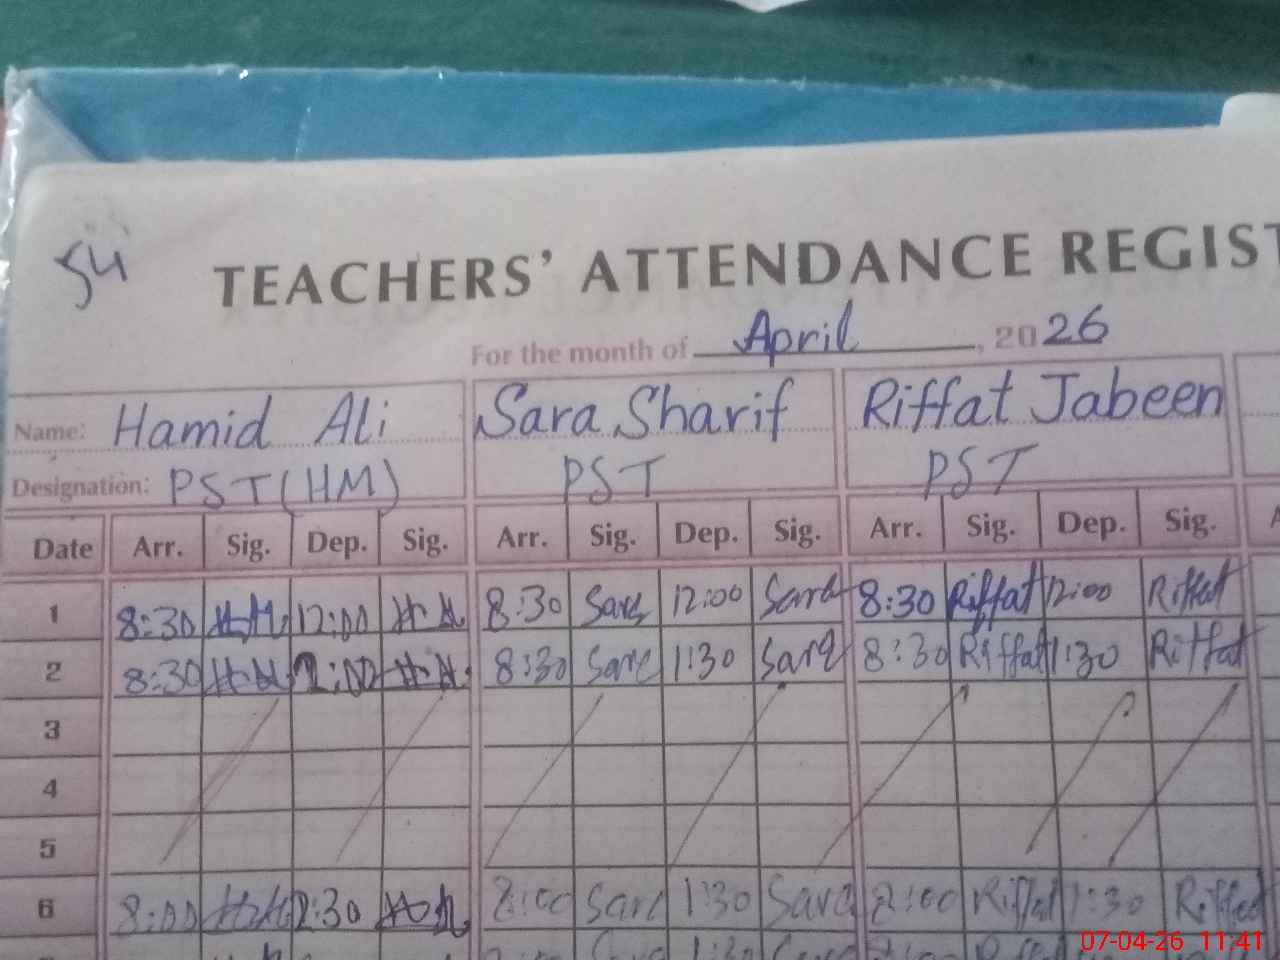 54
TEACHERS' ATTENDANCE REGIST
For the month of April, 2026
Name: Hamid Ali Sara Sharif Riffat Jabeen
Designation: PST(HM) PST PST
Date Arr. Sig. Dep. Sig. Arr. Sig. Dep. Sig. Arr. Sig. Dep. Sig. A
1 8:30 12:00 8:30 Sara 12:00 Sara 8:30 Riffat 12:00 Riffat
2 8:30 8:30 Sara 1:30 Sara 8:30 Riffat 1:30 Riffat
3
4
5
6 8:00 8:00 Sara 1:30 Sara 8:00 Riffat 1:30 Riffat
07-04-26 11:41